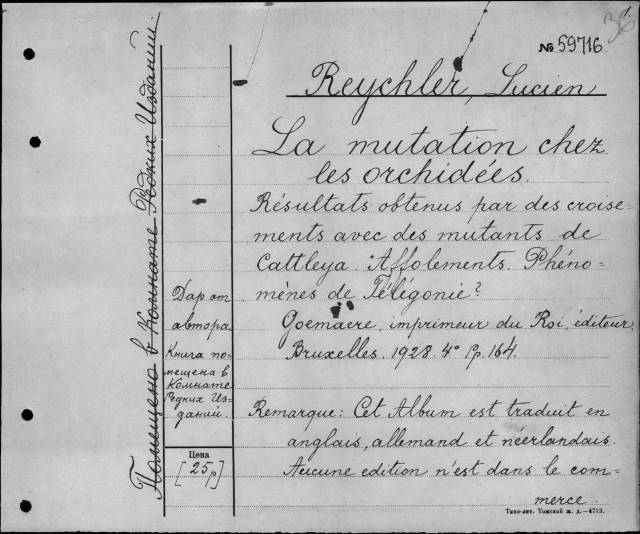 36
№ 59716
Reychler, Lucien
La mutation chez
les orchidées.
Résultats obtenus par des croise-
ments avec des mutants de
Cattleya. Affolements. Phéno-
mènes de Télégonie?
Goemaere, imprimeur du Roi, éditeur
Bruxelles. 1928. 4° p. 164.
Remarque: Cet Album est traduit en
anglais, allemand et néerlandais.
Aucune edition n'est dans le com-
merce.
Помещено в Комнате Редких Изданий.
Дар от
автора
Книга по-
мещена в
Комнате
Редких Из-
даний.
Цена
[25р]
Типо-лит. Томской ж. д.—4713.